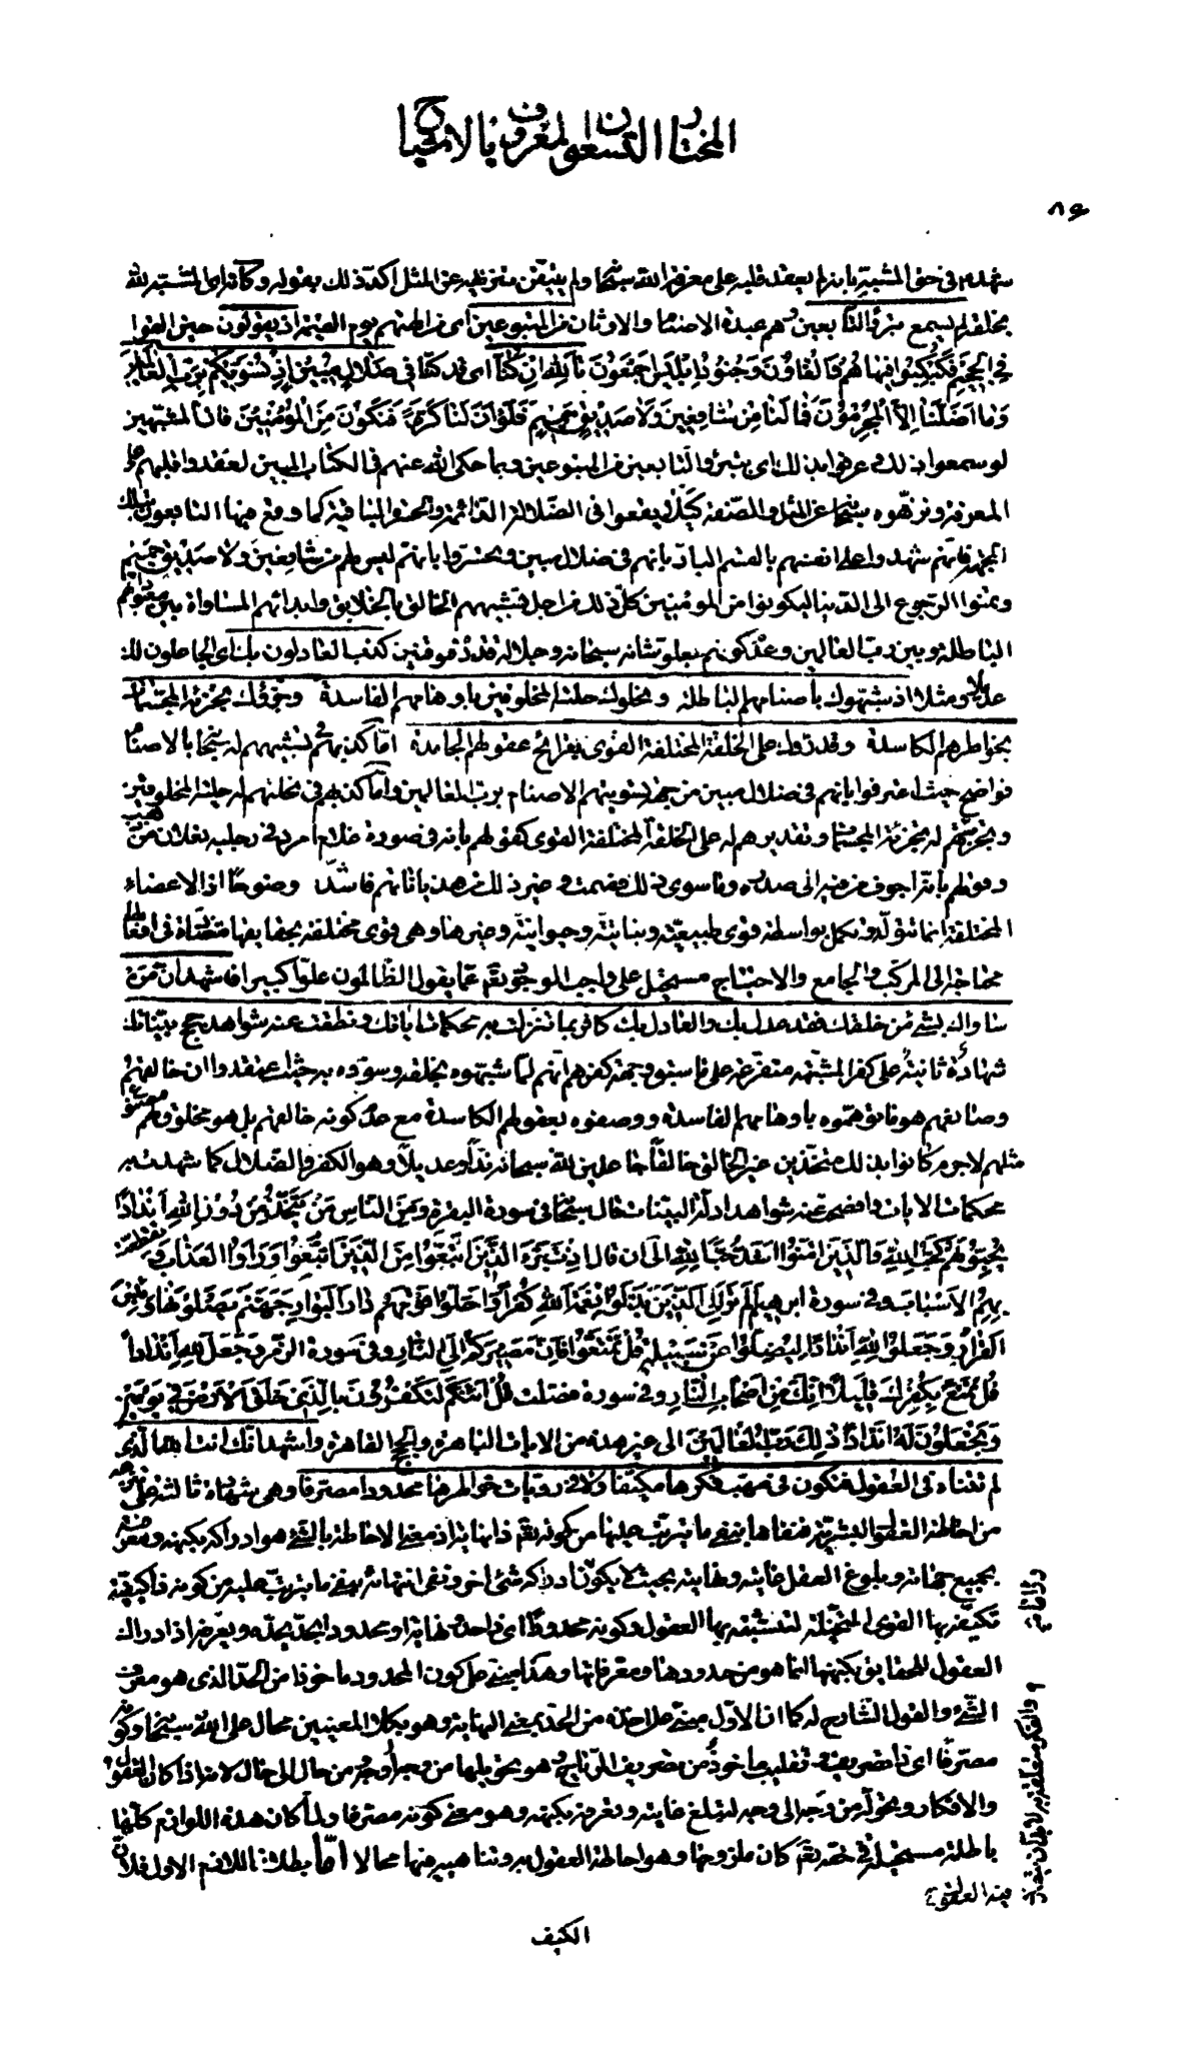 المختار التسعون المعروف بالاشباح
٨٩
شهد في حق المشبه بانه لم يعقد قلبه على معرفة الله سبحانه ولم يتيقن تنزيهه عن المثل اكد ذلك بقوله وكانه اى المشبه لله
بخلقه لم يسمع تبرؤ التابعين وهم عبدة الاصنام والاوثان من المتبوعين اى من الهتهم يوم القيمة اذ يقولون حين القوا
فى الجحيم فكبكبوا فيها هم والغاون وجنود ابليس اجمعون تالله ان كنا اى قد كنا فى ضلال مبين اذ نسويكم برب العالمين
وما اضلنا الا المجرمون فما لنا من شافعين ولا صديق حميم فلو ان لنا كرة فنكون من المؤمنين فان المشبهين
لو سمعوا ذلك وعرفوا بذلك اى بتبرؤ التابعين من المتبوعين وبما حكى الله عنهم فى الكتاب المبين لعقدوا قلبهم على
المعرفة ونزهوه سبحانه عن المثل والصفة كيلا يقعوا فى الضلالة الدائمة والحسرة الباقية كما وقع فيها التابعون بذلك
الجهة فانهم شهدوا على انفسهم بالقسم البار بانهم فى ضلال مبين وتحسروا بانهم ليس لهم من شافعين ولا صديق حميم
وتمنوا الرجوع الى الدنيا ليكونوا من المؤمنين كل ذلك من اجل تشبيههم الخالق بالخلايق وابدائهم المساواة بين معبوداتهم
الباطلة وبين رب العالمين وعدم كونهم بعلو شانه سبحانه وجلاله قدره موقنين كذب العادلون بك اى الجاعلون لك
عديلا ومثلا اذ شبهوك باصنامهم الباطلة ونحلوك حلية المخلوقين باوهامهم الفاسدة وجزؤك تجزئة المجسمات
بخواطرهم الكاسدة وقدروك على الخلقة المختلفة القوى بقرائح عقولهم الجامدة اما كذبهم فى تشبيههم له سبحانه بالاصنام
فواضح حيث اعترفوا بانهم فى ضلال مبين من جهة تسويتهم الاصنام برب العالمين واما كذبهم فى نحلتهم له حلية المخلوقين
وتجزئتهم له تجزئة المجسمات وتقديرهم له على الخلقة المختلفة القوى كقولهم بانه فى صورة غلام امرد فى رجليه نعلان من ذهب
وقولهم بانه اجوف من فيه الى صدره وما سوى ذلك مصمت وغير ذلك من هذيانهم فاشد وضوحا اذ الاعضاء
المختلفة انما تتولد وتكمل بواسطة قوى طبيعية ونباتية وحيوانية وغيرها وهى قوى مختلفة بحقايقها متضادة فى افعالها
محتاجة الى المركب والجامع والاحتياج مستحيل على واجب الوجود تقدم عما يقول الظالمون علوا كبيرا فاشهد ان من
ساواك بشىء من خلقك فقد عدل بك والعادل بك كافر بما تنزلت به محكمات اياتك ونطقت عنه شواهد حجج بيناتك
شهادة ثانية على كفر المشبهة متفرعة على ما سبق وجهة كفرهم انهم لما شبهوه بخلقه وسووه به حيث اعتقدوا ان خالقهم
وصانعهم هو ما توهموه باوهامهم الفاسدة ووصفوه بعقولهم الكاسدة مع عدم كونه خالقهم بل هو مخلوق لهم مصنوع
مثلهم لا جرم كانوا بذلك متخذين غير الخالق خالقا جاعلين لله سبحانه ندا وعديلا وهو الكفر والضلال كما شهدت به
محكمات الايات وافصحت عنه شواهد ادلة البينات قال سبحانه فى سورة البقرة ومن الناس من يتخذ من دون الله اندادا
يحبونهم كحب الله والذين امنوا اشد حبا لله الى ان قال اذ تبرء الذين اتبعوا من الذين اتبعوا وراوا العذاب وتقطعت
بهم الاسباب وفى سورة ابراهيم الم تر الى الذين بدلوا نعمة الله كفرا واحلوا قومهم دار البوار جهنم يصلونها وبئس
القرار وجعلوا لله اندادا ليضلوا عن سبيله قل تمتعوا فان مصيركم الى النار وفى سورة الزمر وجعل لله اندادا
قل تمتع بكفرك قليلا انك من اصحاب النار وفى سورة فصلت قل ائنكم لتكفرون بالذى خلق الارض فى يومين
وتجعلون له اندادا ذلك رب العالمين الى غير هذه من الايات الباهرة والحجج القاهرة واشهد انك انت الله الذى
لم تتناه فى العقول فتكون فى مهب فكرها مكيفا ولا فى رويات خواطرها محدودا مصرفا وهى شهادة ثالثة على
من احاطة العقول البشرية فنفاها بنفى ما يترتب عليها من كونه تقدم ذا نهاية اذ معنى الاحاطة بالشىء هو ادراكه بكنهه ومعرفته
بجميع جهاته وبلوغ العقل غايته ونهايته بحيث لا يكون ادراكه شىء اخر ونفى انتهائه بنفى ما يترتب عليه من كونه ذا كيفية
تكيفه بها القوى المخيلة لتثبته بها العقول وكونه محدودا اى ذا حد ونهاية او محدودا بحد يحده ويعرفه اذ ادراك
العقول للحقايق بكنهها انما هو من حدودها ومعرفاتها وهذا مبنى على كون المحدود ماخوذا من الحد الذى هو معرف
الشىء والقول الشارح له كما ان الاول مبنى على اخذه من الحد بمعنى النهاية وهو بكلا المعنيين محال على الله سبحانه وكونه
مصرفا اى ذا تصريف وتقليب ماخوذ من تصريف الرياح وهو تحويلها من وجه الى وجه ومن حال الى حال لانه اذا كان العقول
والافكار وتحوله من وجه الى وجه لتبلغ غايته وتعرفه بكنهه وهو معنى كونه مصرفا ولما كان هذه اللوازم كلها
باطلة مستحيلة فى حقه تقدم كان ملزومها وهو احاطة العقول به وتناهيه فيها محالا اما بطلان اللازم الاول فلان
الكيف